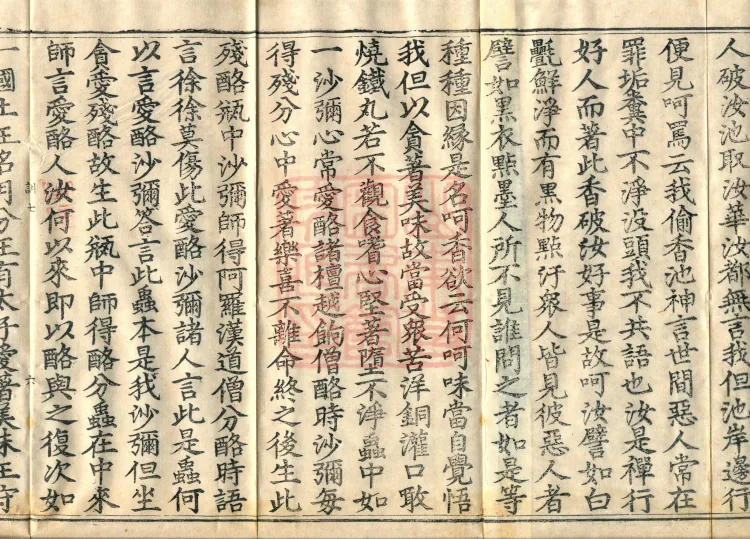 人破汝池取汝華汝都無言我但池岸邊行
便見呵罵云我偷香池神言世間惡人常在
罪垢糞中不淨没頭我不共語也汝是禪行
好人而著此香破汝好事是故呵汝譬如白
㲲鮮淨而有黒物點汙衆人皆見彼惡人者
譬如黒衣點墨人所不見誰問之者如是等
種種因緣是名呵香欲云何呵味當自覺悟
我但以貪著美味故當受衆苦洋銅灌口噉
燒鐵丸若不觀食嗜心堅著墮不淨蟲中如
一沙彌心常愛酪諸檀越餉僧酪時沙彌每
得殘分心中愛著樂喜不離命終之後生此
殘酪瓶中沙彌師得阿羅漢道僧分酪時語
言徐徐莫傷此愛酪沙彌諸人言此是蟲何
以言愛酪沙彌答言此蟲本是我沙彌但坐
貪愛殘酪故生此瓶中師得酪分蟲在中來
師言愛酪人汝何以來即以酪與之復次如
訓七
六
一國王王名月分王有太子愛著美味王守